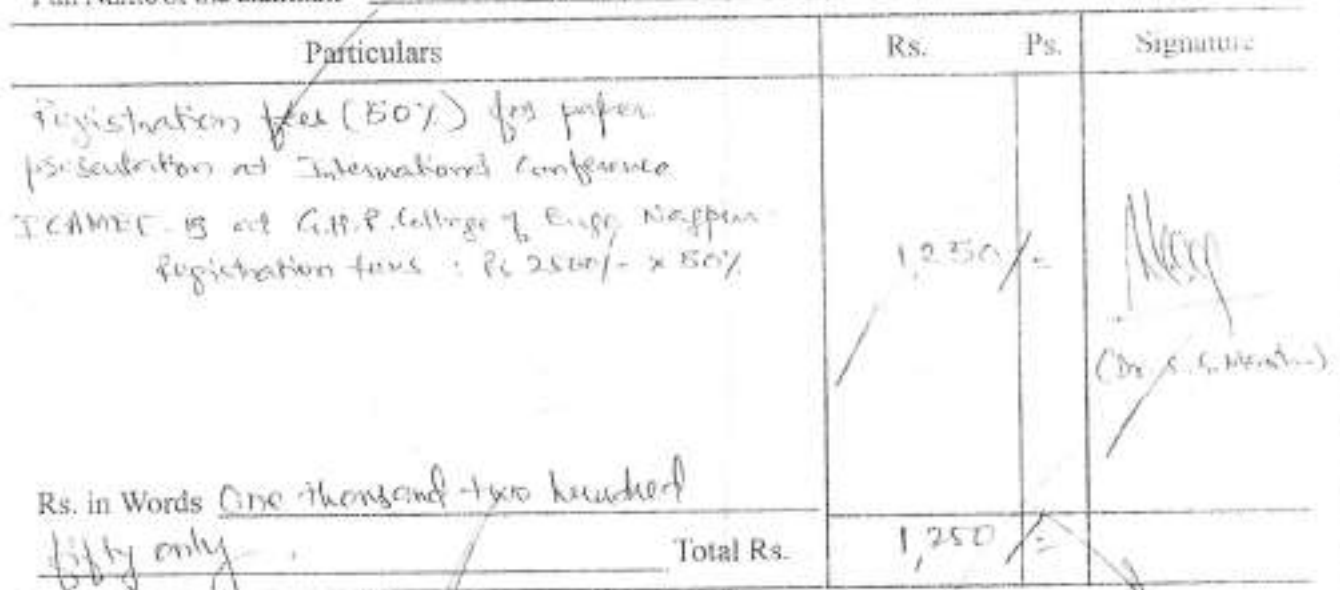 Full Name of the Claimant
Particulars Rs. Ps. Signature
Registration fees (50%) for paper
presentation at International Conference
ICAMET-19 at G.H.R. College of Engg Nagpur
Registration fees : Rs 2500/- x 50% 1,250/=
(Dr. S. S.
Rs. in Words One thousand two hundred
fifty only Total Rs. 1,250/=